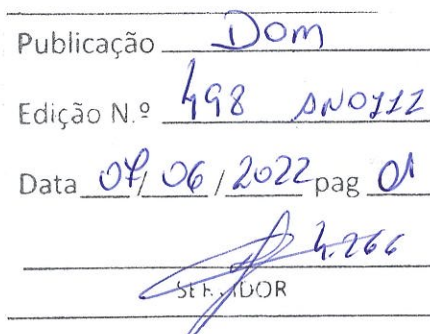 Publicação Dom
Edição N.º 498
Data 07/06/2022 pag 01
4.266
SERVIDOR